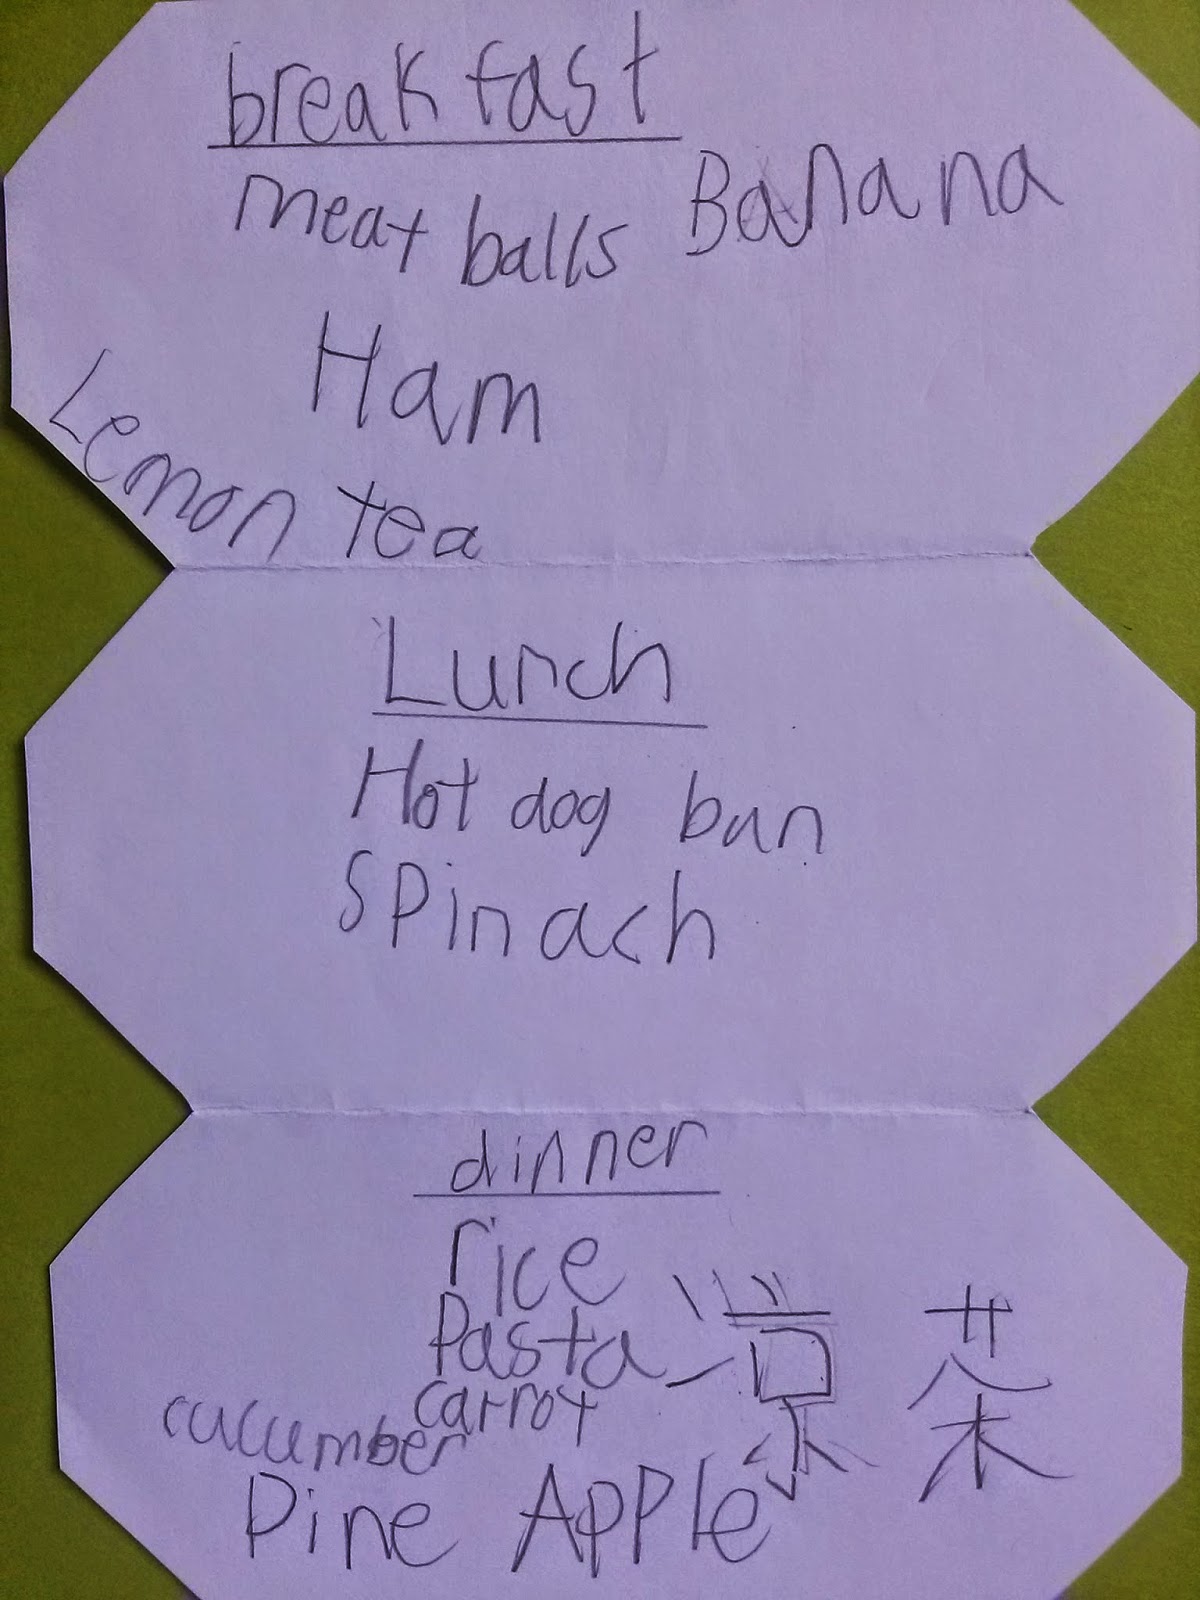 breakfast
meat balls Banana
Ham
Lemon tea
Lunch
Hot dog bun
Spinach
dinner
rice
Pasta
carrot
cucumber
Pine Apple
茶